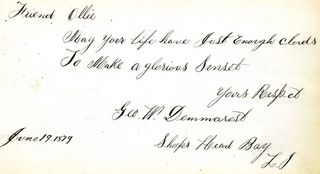 Friend Ollie
May Your life have Just Enough clouds
To Make a glorious Sunset
Yours Respct
Geo. W. Demmarest
Sheps Head Bay
June 19. 1879
L. I